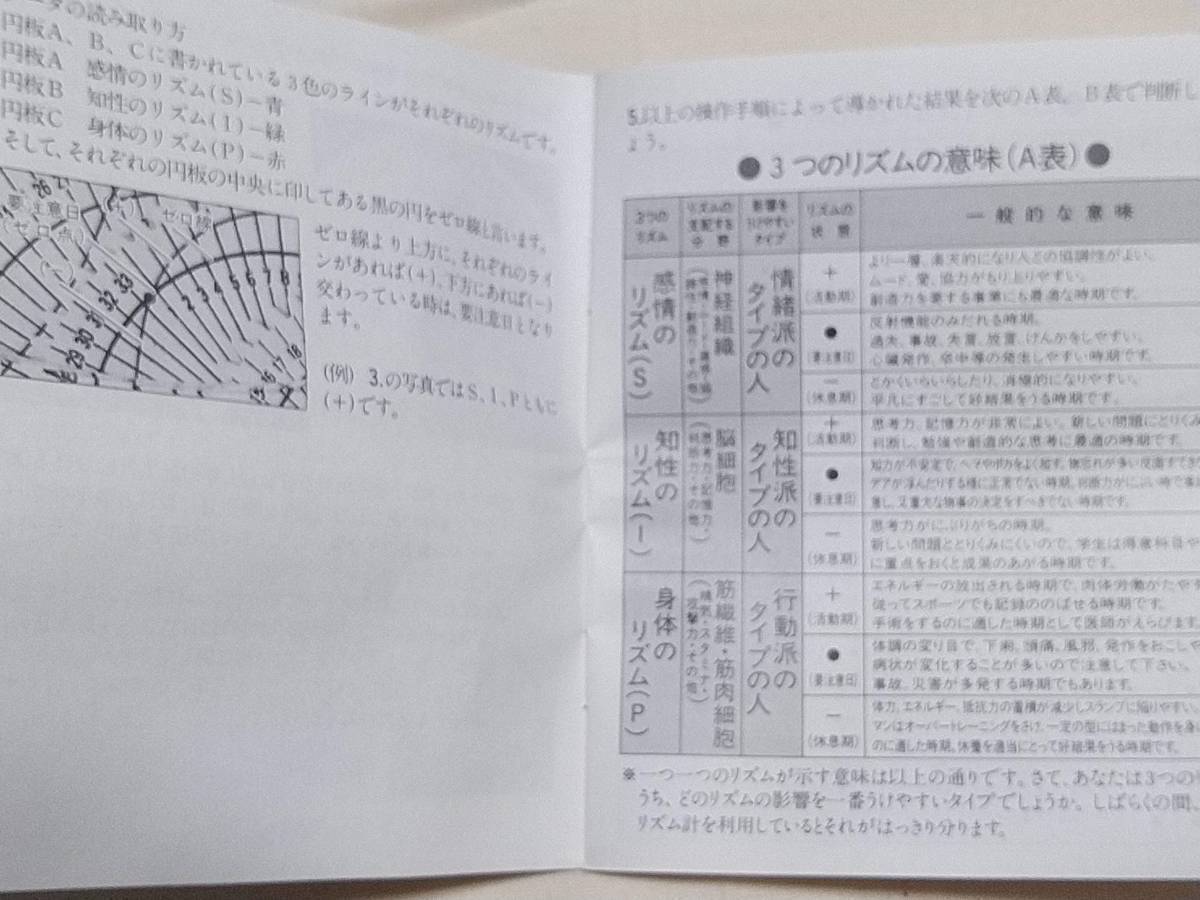 タの読み取り方
円板A、B、Cに書かれている3色のラインがそれぞれのリズムです。
円板A 感情のリズム(S)−青
円板B 知性のリズム(I)−緑
円板C 身体のリズム(P)−赤
そして、それぞれの円板の中央に印してある黒の円をゼロ線と言います。
要注意日
(ゼロ点)
(+)
ゼロ線
(−)
26 27
33
32
31
30
29
1 2 3 4 5 6 7 8
15 16 17 18
ゼロ線より上方に、それぞれのライ
ンがあれば(+)、下方にあれば(−)
交わっている時は、要注意日となり
ます。
(例) 3.の写真ではS、I、Pともに
(+)です。
5.以上の操作手順によって導かれた結果を次のA表、B表で判断し
ょう。
●3つのリズムの意味(A表)●
3つの
リズム
リズムの
支配する
分野
影響を
うけやすい
タイプ
リズムの
状態
一般的な意味
感情の
リズム(S)
神経組織
情緒派の
タイプの人
+
(活動期)
より一層、楽天的になり人との協調性がよい。
ムード、愛、協力がもり上りやすい。
創造力を要する事業にも最適な時期です。
●
(要注意日)
反射機能のみだれる時期。
過失、事故、失言、放言、けんかをしやすい。
心臓発作、卒中等の発生しやすい時期です。
−
(休息期)
とかくいらいらしたり、消極的になりやすい。
平凡にすごして好結果をうる時期です。
知性の
リズム(I)
脳細胞
(思考力・記憶力・
判断力・その他)
知性派の
タイプの人
+
(活動期)
思考力、記憶力が非常によい。新しい問題にとりくみ
判断し、勉強や創造的な思考に最適の時期です。
●
(要注意日)
知力が不安定で、ヘマやポカをよく起す。物忘れが多い反面すてき
デアが浮んだりする様に正常でない時期。判断力がにぶい時で
意し、又重大な物事の決定をすべきでない時期です。
−
(休息期)
思考力がにぶりがちの時期。
新しい問題ととりくみにくいので、学生は得意科目や
に重点をおくと成果のあがる時期です。
身体の
リズム(P)
筋繊維・筋肉細胞
(精気・スタミナ・
攻撃力・その他)
行動派の
タイプの人
+
(活動期)
エネルギーの放出される時期で、肉体労働がたやす
従ってスポーツでも記録ののばせる時期です。
手術をするのに適した時期として医師がえらびます。
●
(要注意日)
体調の変り目で、下痢、頭痛、風邪、発作をおこしや
病状が変化することが多いので注意して下さい。
事故、災害が多発する時期でもあります。
−
(休息期)
体力、エネルギー、抵抗力の蓄積が減少しスランプに陥りやすい。
マンはオーバートレーニングをさけ、一定の型にはまった動作を身
のに適した時期。休養を適当にとって好結果をうる時期です。
※一つ一つのリズムが示す意味は以上の通りです。さて、あなたは3つの
うち、どのリズムの影響を一番うけやすいタイプでしょうか。しばらくの間、
リズム計を利用しているとそれがはっきり分ります。